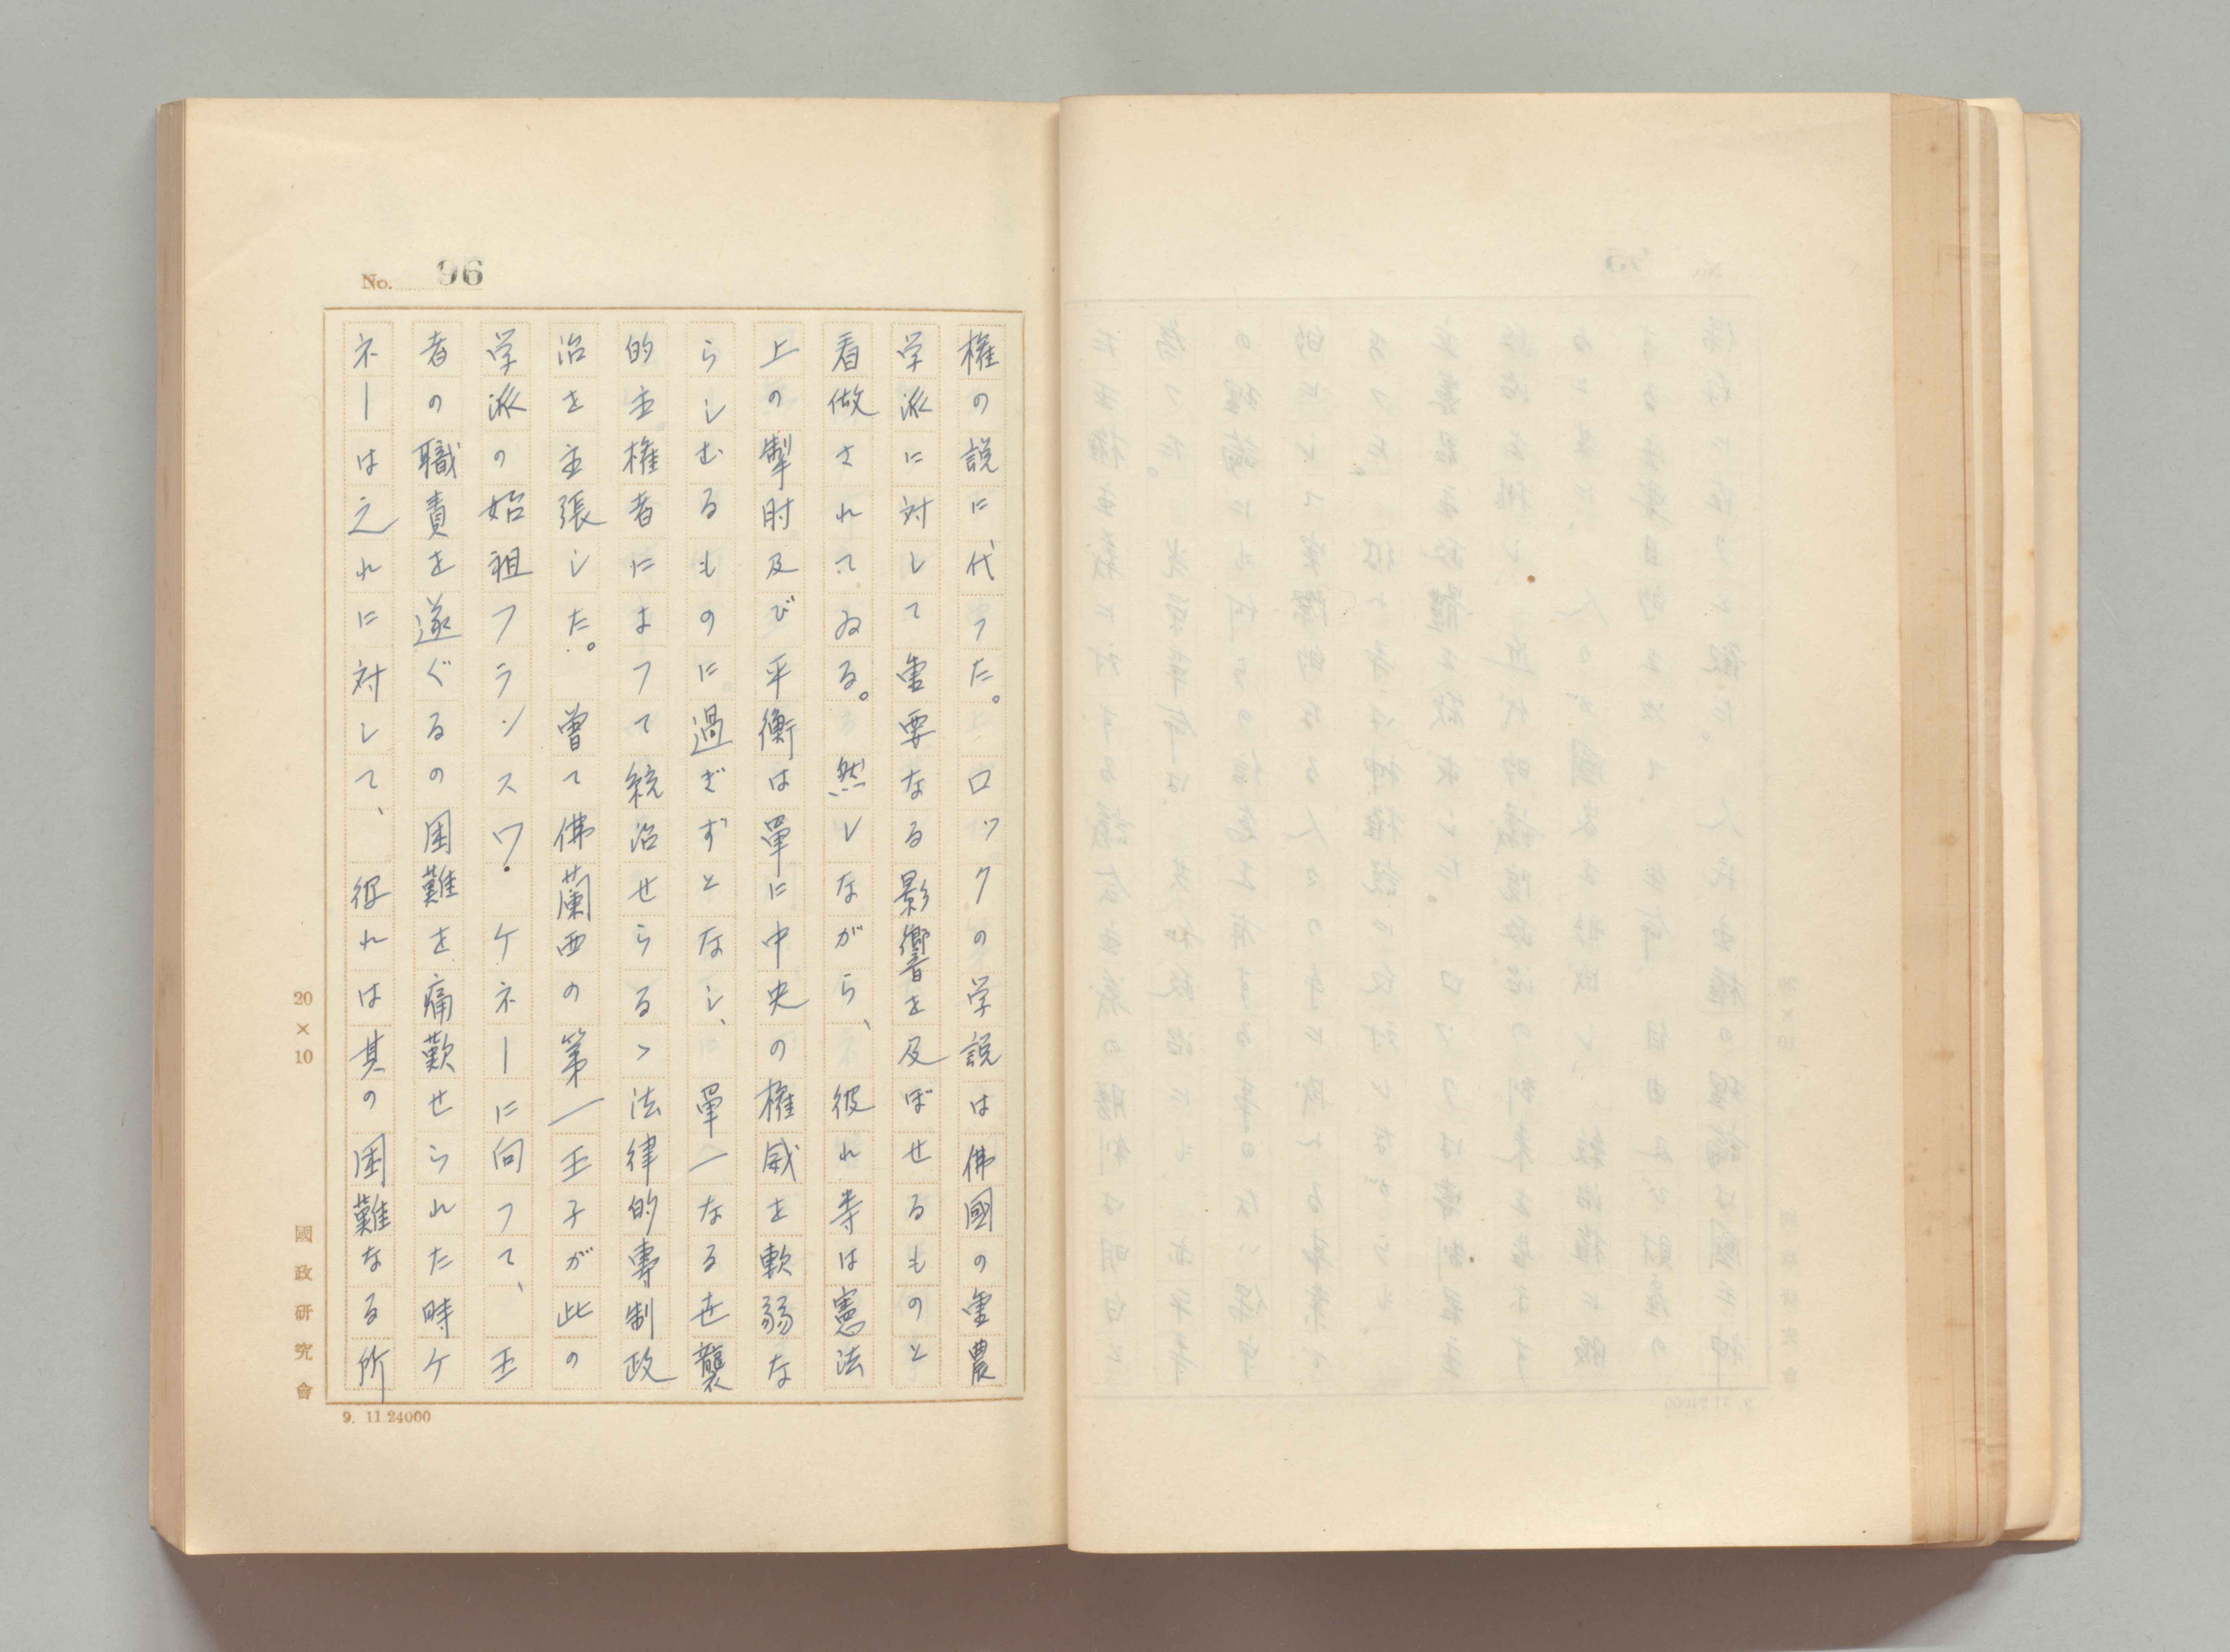 No. 96
権の説に代つた。ロツクの学説は佛國の重農
学派に対して重要なる影響を及ぼせるものと
看做されてゐる。然しながら、彼れ等は憲法
上の掣肘及び平衡は單に中央の権威を軟弱な
らしむるものに過ぎずとなし、單一なる世襲
的主権者によつて統治せらるゝ法律的專制政
治を主張した。曾て佛蘭西の第一王子が此の
学派の始祖フランスワ・ケネーに向つて、王
者の職責を遂ぐるの困難を痛歎せられた時ケ
ネーは之れに対して、彼れは其の困難なる所
20×10
國政研究會
9. 11 24000